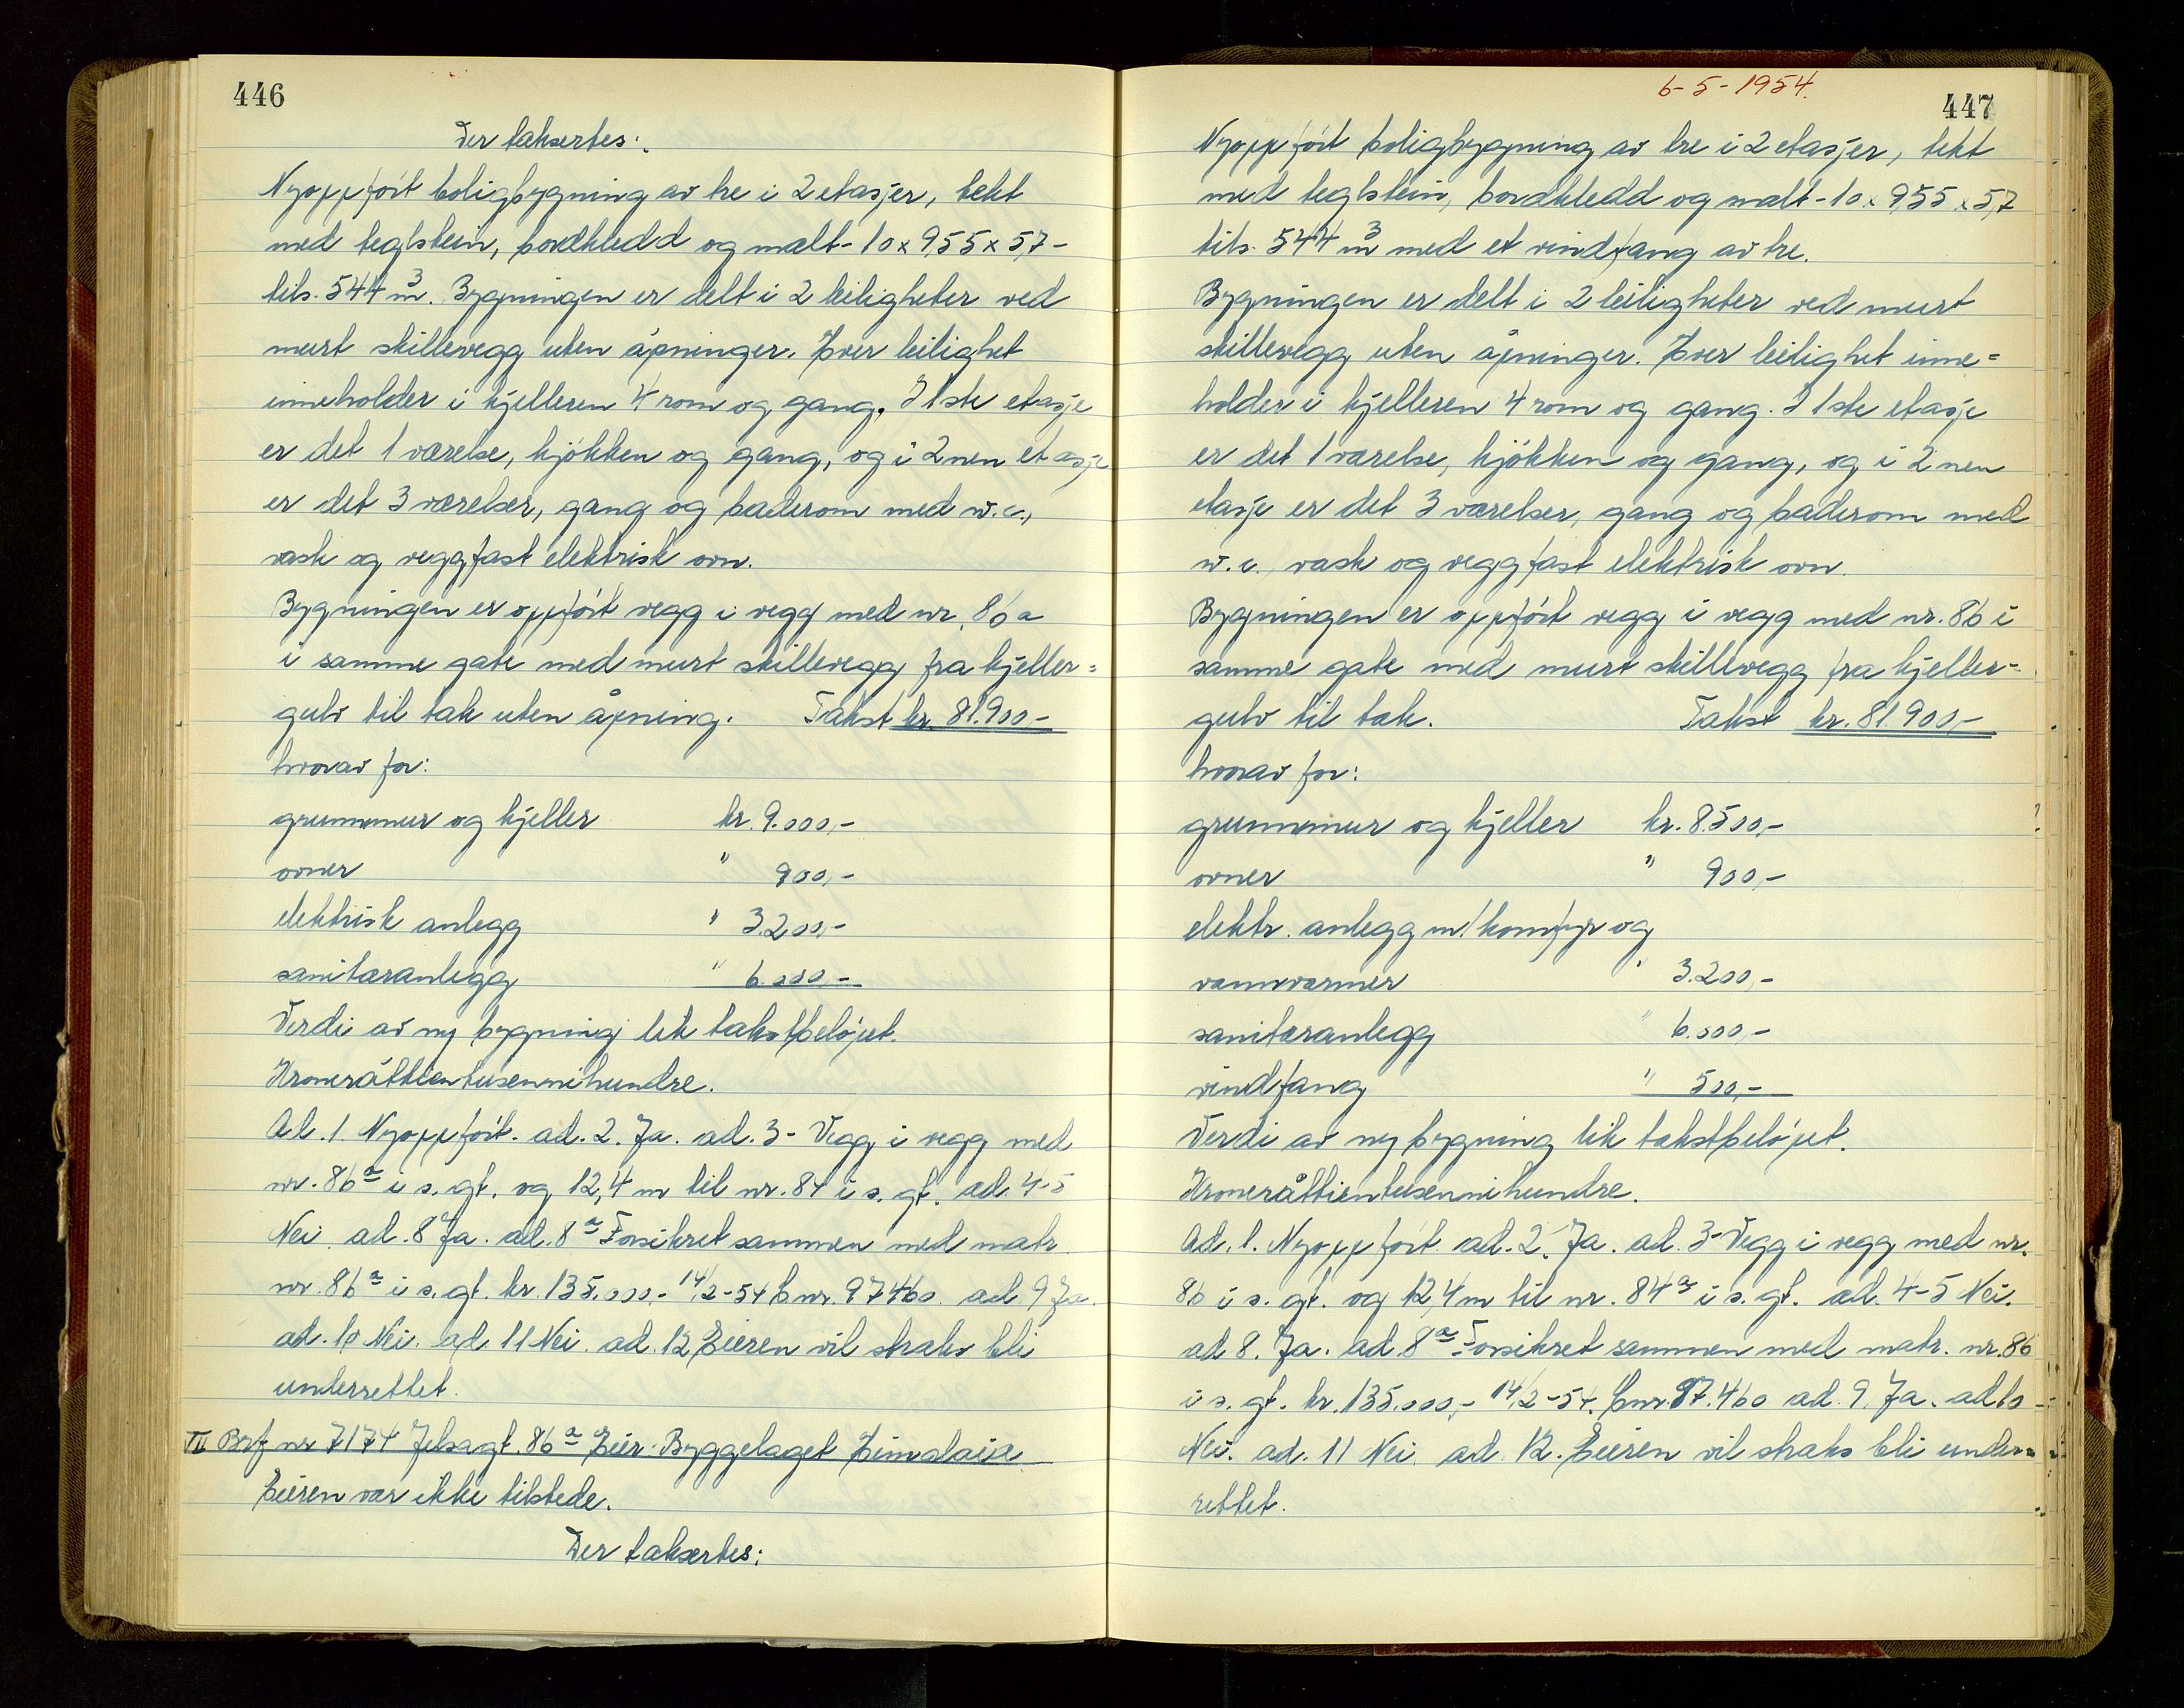 446
Der taksertes:
Nyoppfört boligbygning av tre i 2 etasjer, tekt
med teglstein, bordkledd og malt - 10 x 9,55 x 5,7 -
tils. 544 m³. Bygningen er delt i 2 leiligheter ved
murt skillevegg uten åpninger. Hver leilighet
inneholder i kjelleren 4 rom og gang. I 1ste etasje
er det 1 værelse, kjökken og gang, og i 2nen etasje
er det 3 værelser, gang og baderom med w.c.,
vask og veggfast elektrisk ovn.
Bygningen er oppfört vegg i vegg med nr. 86a
i samme gate med murt skillevegg fra kjeller=
gulv til tak uten åpning. Takst kr. 81.900-
hvorav for:
grunnmur og kjeller kr. 9.000,-
ovner " 900,-
elektrisk anlegg " 3.200,-
sanitæranlegg " 6.000-
Verdi av ny bygning lik takstbelöpet.
Kroneråttientusennihundre.
Ad. 1. Nyoppfört. ad. 2. Ja. ad. 3- Vegg i vegg med
nr. 86a i s. gt. og 12,4 m til nr. 84 i s. gt. ad. 4-5
Nei. ad. 8 Ja. ad. 8a Forsikret sammen med matr.
nr. 86a i s. gt. kr. 135.000,- 14/2-54 bnr. 97460. ad. 9 Ja.
ad. 10 Nei. ad. 11 Nei. ad. 12 Eieren vil straks bli
underrettet.
VI Brf nr 7174 Jelsagt. 86a Eier: Byggelaget Himalaia
Eieren var ikke tilstede.
Der taksertes:
6-5-1954.
447
Nyoppfört boligbygning av tre i 2 etasjer, tekt
med teglstein, bordkledd og malt - 10 x 9,55 x 5,7
tils. 544 m³ med et vindfang av tre.
Bygningen er delt i 2 leiligheter ved murt
skillevegg uten åpninger. Hver leilighet inne=
holder i kjelleren 4 rom og gang. I 1ste etasje
er det 1 værelse, kjökken og gang, og i 2nen
etasje er det 3 værelser, gang og baderom med
w.c. vask og veggfast elektrisk ovn.
Bygningen er oppfört vegg i vegg med nr. 86 i
samme gate med murt skillevegg fra kjeller-
gulv til tak. Takst kr. 81.900,-
hvorav for:
grunnmur og kjeller kr. 8.500,-
ovner " 900,-
elektr. anlegg m/komfyr og
vannvarmer " 3.200,-
sanitæranlegg " 6.000,-
vindfang " 500,-
Verdi av ny bygning lik takstbelöpet.
Kroneråttientusennihundre.
Ad. 1. Nyoppfört. ad. 2. Ja. ad. 3- Vegg i vegg med nr.
86 i s. gt. og 12,4 m til nr. 84a i s. gt. ad. 4-5 Nei.
ad 8. Ja. ad. 8a Forsikret sammen med matr. nr. 86
i s. gt. kr. 135.000,- 14/2-54. bnr. 97.460 ad. 9. Ja. ad 10
Nei. ad. 11 Nei. ad. 12. Eieren vil straks bli under=
rettet.